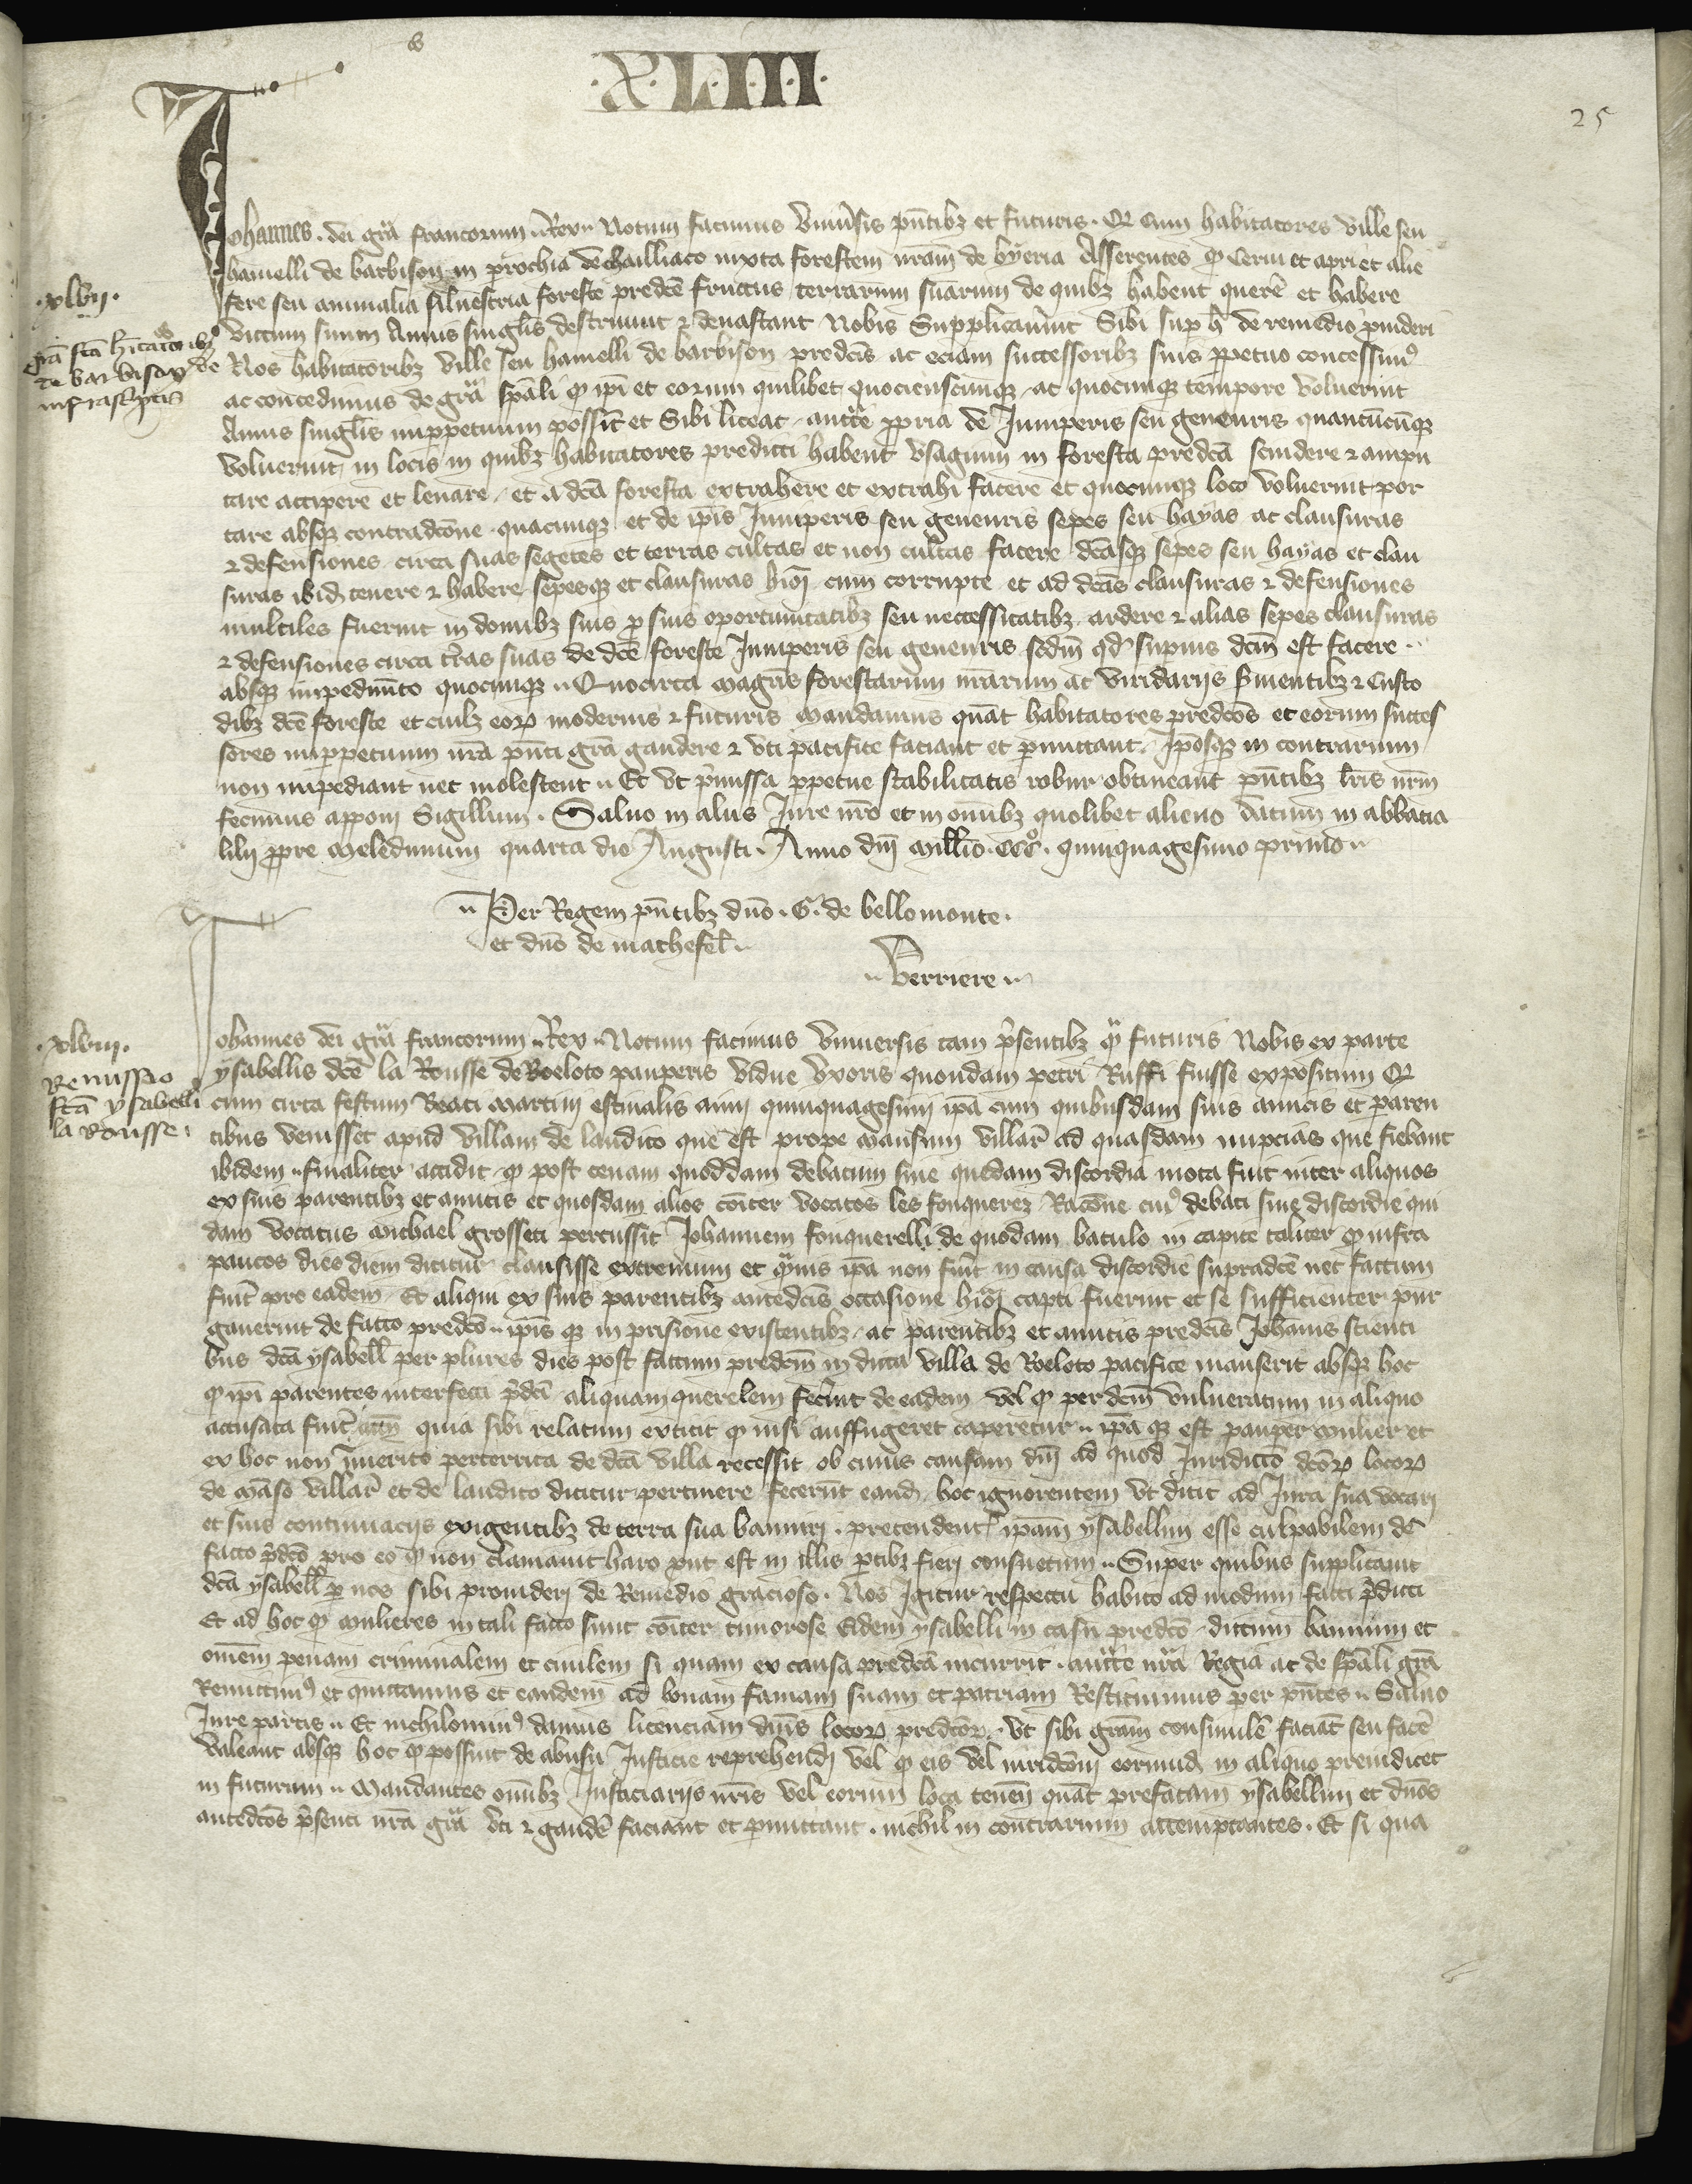 XLIII
25
Johannes dei grā francorum Rex Notum facimus Vniūsis pn̄tibȝ et futuris. Qȝ Cum habitatores ville seu
hamelli de barbison in prochia de Chailliaco iuxta forestem nrām de byeria Asserentes qȝ Cerui et apri et alie
fere seu animalia siluestria foreste predcē fructus terrarum suarum de quibȝ habent querē et habere
victum suum Annis singlīs destruunt ⁊ deuastant Nobis Supplicauīnt Sibi sup h̄ de remedio puideri
Nos habitatoribȝ ville seu hamelli de barbison predcīs ac eciam successoribȝ suis ppetuo concessimꝰ
ac concedimus de grā spāli qȝ ipī et eorum quilibet quocienscunqȝ ac quocunqȝ tempore voluerint
Annis singlīs imppetuum possīt et Sibi liceat auttē ppria de Iuniperis seu geneuris quantūcūqȝ
voluerint in locis in quibȝ habitatores predicti habent vsagium in foresta predcā scindere ⁊ ampu
tare accipere et leuare et a dcā foresta extrahere et extrahi facere et quocunqȝ loco voluerint por
tare absqȝ contradcōne quacunqȝ et de ipīs Iuniperis seu geneuris sepes seu hayas ac clausuras
⁊ defensiones circa suas segetes et terras cultas et non cultas facere dcāsqȝ sepes seu hayas et clau
suras ibid tenere ⁊ habere sepesqȝ et clausuras hīoi cum corrupte et ad dcās clausuras ⁊ defensiones
inutiles fuerint in domibȝ suis p suis oportunitatibȝ seu neccessitatibȝ ardere ⁊ alias sepes clausuras
⁊ defensiones circa trās suas de dcē foreste Iuniperis seu geneuris scdm qd supius dcm̄ est facere
absqȝ impedimn̄to quocunqȝ Quocirca magrīs forestarum nrārum ac viridarijs s̄uientibȝ ⁊ custo
dibȝ dcē foreste et cuilȝ eorꝝ modernis ⁊ futuris mandamus quāt habitatores predcōs et eorum succes
sores imppetuum nrā pn̄ti grā gaudere ⁊ vti pacifice faciant et pmittant. Ipōsqȝ in contrarium
non impediant nec molestent Et vt p̄missa ppetue stabilitatis robur obtineant pn̄tibȝ lrīs nrm̄
fecimus apponi Sigillum. Saluo in aliis Iure nrō et in omibȝ quolibet alieno datum in abbatia
lilij ppre meledunum quarta die Augusti. Anno dni millīo. CCC°. quinquagesimo primo
Per Regem pn̄tibȝ dnō. G. de bellomonte.
et dnō de machefel̄
Verriere
xlvij.
Grā fcā hītatoribȝ
de barbison de
infrascptis
Johannes dei grā francorum Rex Notum facimus vniuersis tam p̄sentibȝ qȝ futuris Nobis ex parte
ysabellis dcē la Rousse de Roeloto pauperis vidue vxoris quondam petri Ruffi fuisse expositum Qȝ
cum circa festum Beati martini estiualis anni quinquagesimi ipā cum quibusdam suis amicis et paren
tibus venisset apud villam de laudito que est prope mansum villar̄ ad quasdam nupcias que fiebant
ibidem finaliter accidit qȝ post cenam quoddam debatum siue quedam discordia mota fuit inter aliquos
ex suis parentibȝ et amicis et quosdam alios cōiter vocatos les fonquerez Racōne cuiꝰ debati siue discordie qui
dam vocatus michael grosseti percussit Johannem fonquerelli de quodam baculo in capite taliter qȝ infra
paucos dies diem dicitur clausisse extremum et qȝuis ipā non fuīt in causa discordie supradcē nec factum
fuīt pro eadem Et aliqui ex suis parentibȝ antedcīs occasione hīoi capti fuerint et se sufficienter pur
gauerint de facto predcō ipīs qȝ in prisione existentibȝ ac parentibȝ et amicis predcīs Johānis scienti
bus dcā ysabell̄ per plures dies post factum predcm̄ in dicta villa de Roeloto pacifice manserit absqȝ hoc
qȝ ipī parentes interfecti p̄dcī aliquam querelem fecīnt de eadem vel qȝ per dcm̄ vulneratum in aliquo
accusata fuīt quia sibi relatum extitit qȝ nisi auffugeret caperetur ipā qȝ est pauper mulier et
ex hoc non inmerito perterrita de dcā villa recessit ob cuius causam dnī ad quod Iuridictō dcōrꝝ locorꝝ
de māso villar̄ et de laudito dicitur pertinere fecerūt eand hoc ignorentem vt dicit ad Iura sua vocari
et suis contumacijs exigentibȝ de terra sua banniri. pretendentꝭ ipām ysabellim esse culpabilem de
facto p̄dcō pro eo qȝ non clamauit haro put est in illis ptibȝ fieri consuetum Super quibus supplicauit
dcā ysabell̄ p nos sibi prouideri de Remedio gracioso. Nos Igitur respectu habito ad modum facti p̄dicti
Et ad hoc qȝ mulieres in tali facto sunt cōiter timorose Eidem ysabelli in casu predcō dictum bannum et
omēm penam criminalem et ciuilem si quam ex causa predcā incurrit. auttē nrā Regia ac de spāli grā
Remittimꝰ et quittamus et eandem ad bonam famam suam et patriam Restituimus per pn̄tes Saluo
Iure partis Et nichilominꝰ damus licenciam dnīs locorꝝ predcōrꝝ. vt sibi grām consimilē faciāt seu facē
valeant absqȝ hoc qȝ possint de abusu Iusticie reprehendi vel qȝ eis vel iuridcōni eorumd in aliquo preiudicet
in futurum Mandantes omibȝ Iusticiarijs nrīs vel eorum loca tenen̄ quāt prefatam ysabellim et dnōs
antedcōs p̄senti nrā grā vti ⁊ gaudē faciant et pmittant. nichil in contrarium attemptantes. Et si qua
xlviij.
Remissio
fcā ysabelli
la Rousse